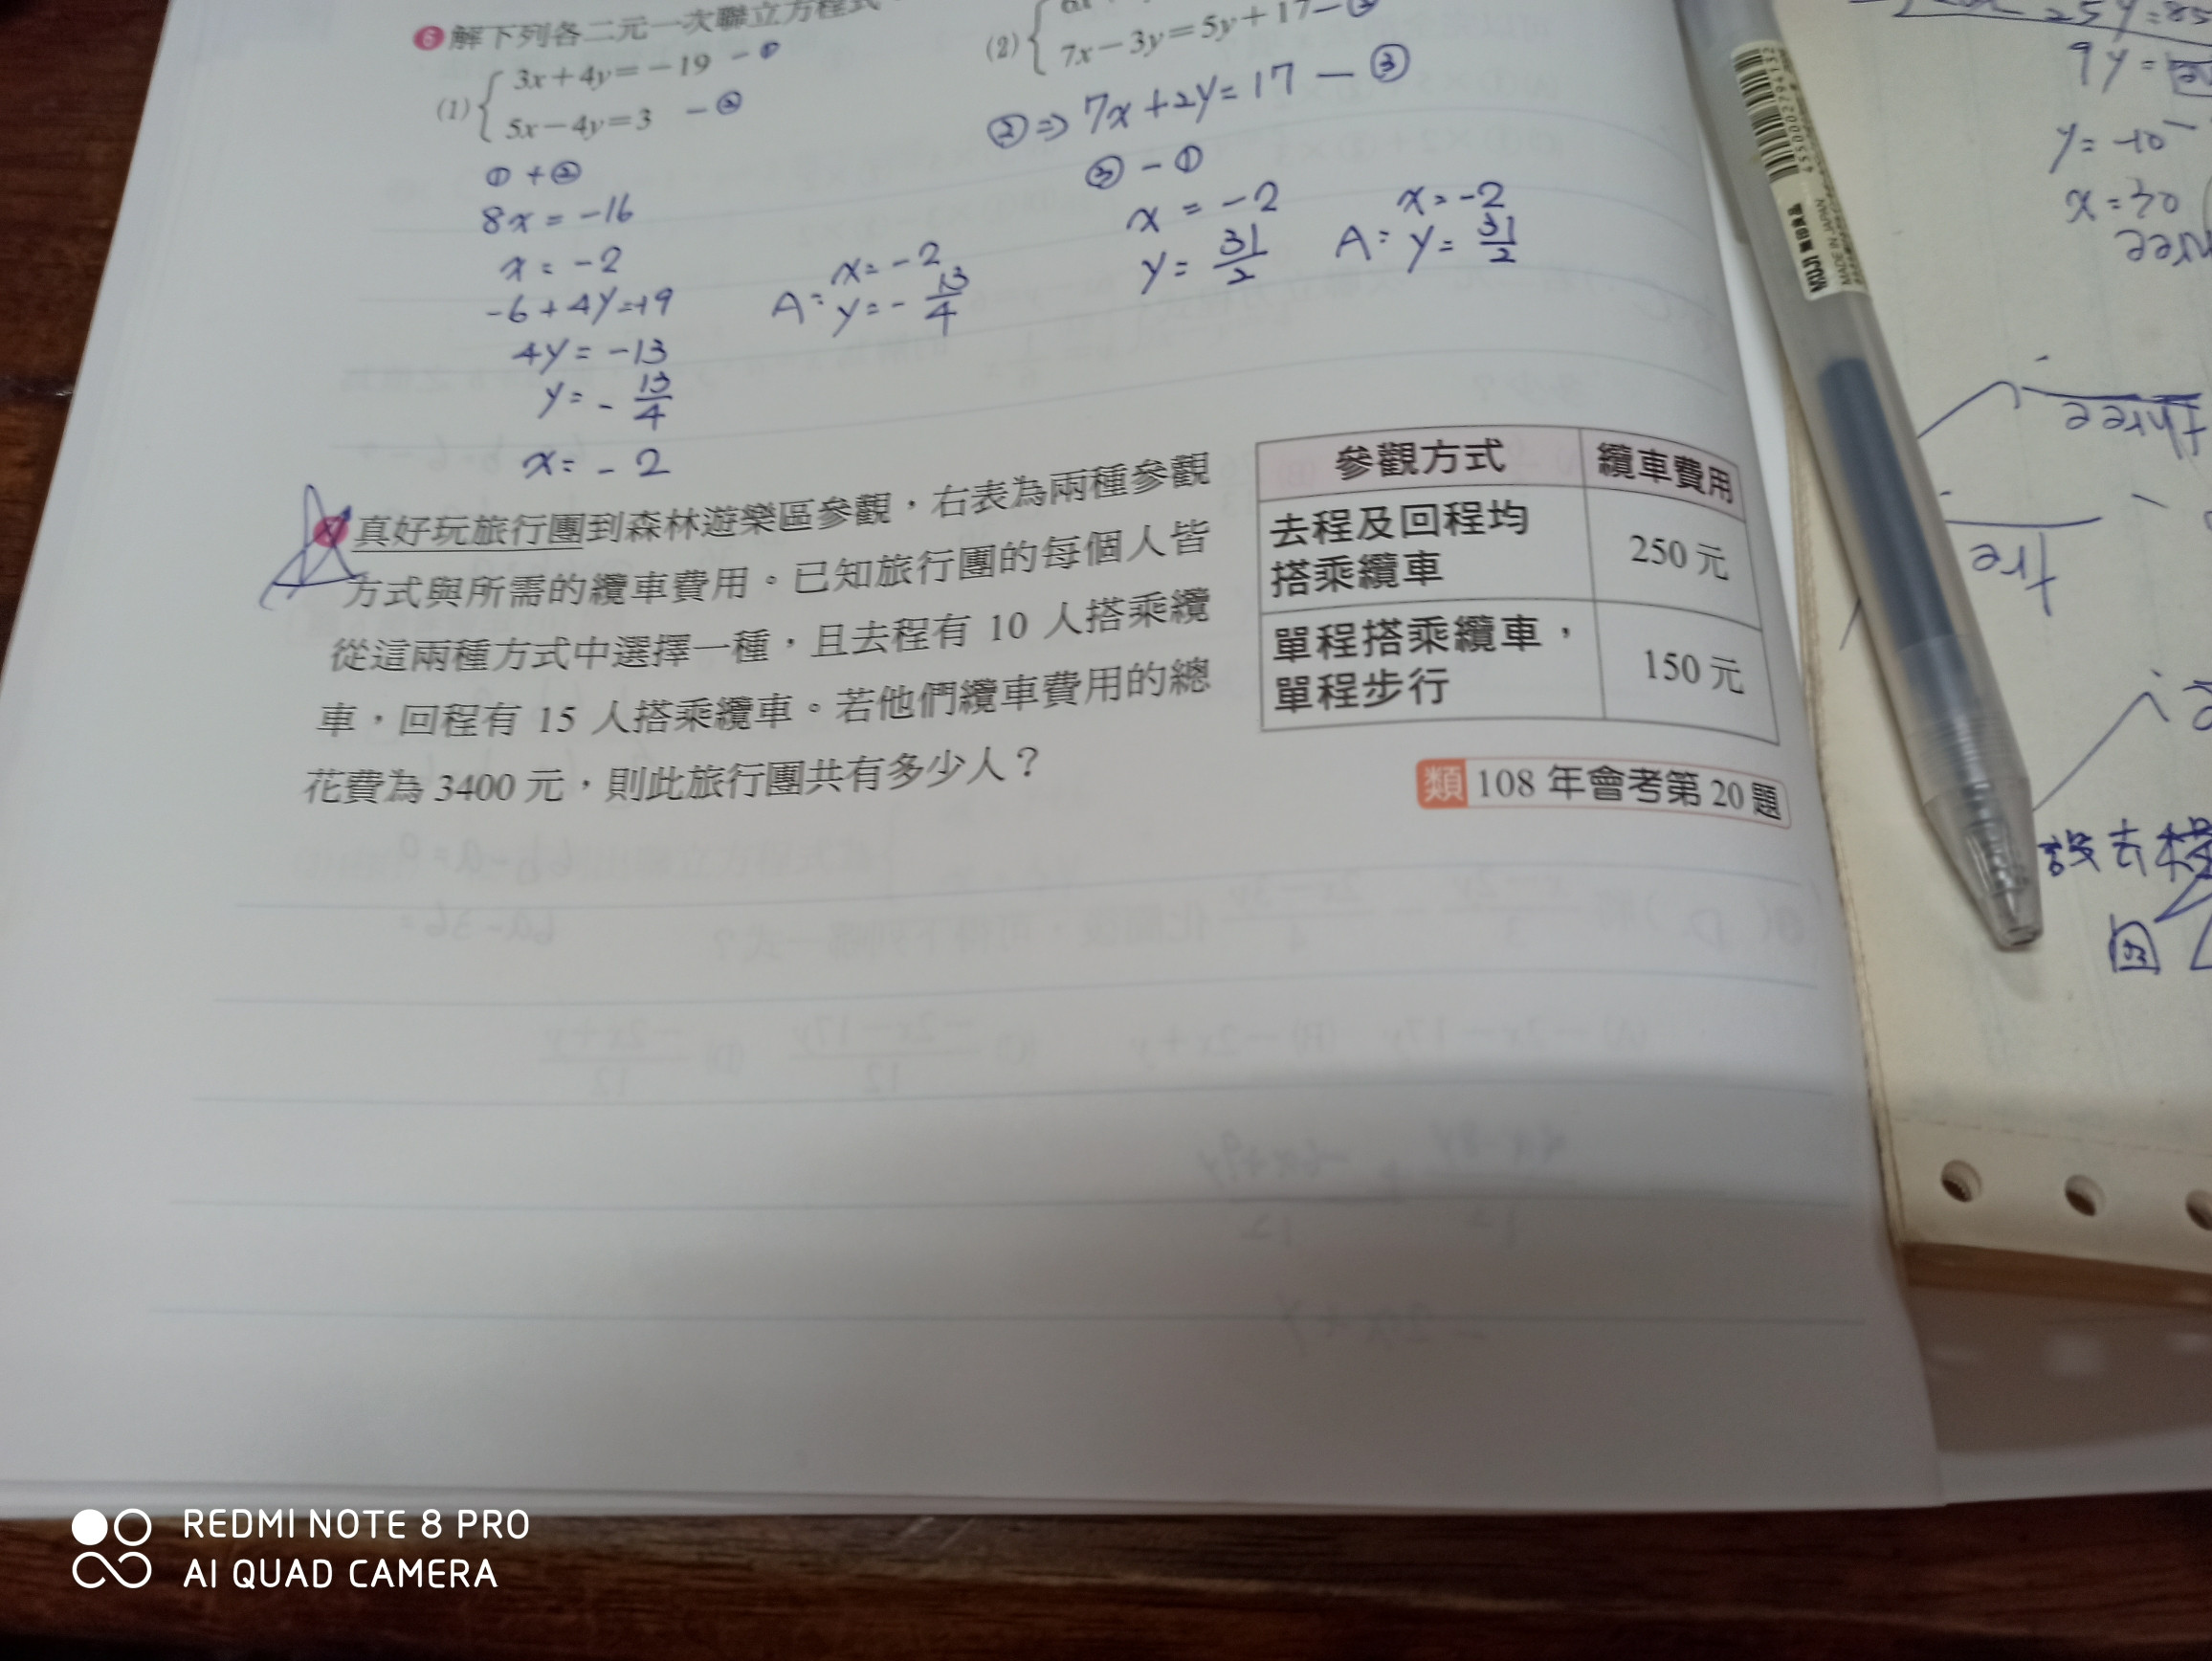 6 解下列各二元一次聯立方程式
(1) 3x+4y=-19 -①
5x-4y=3 -②
①+②
8x=-16
x=-2
-6+4y=-19
4y=-13
y=-13/4
x=-2
A: x=-2
y=-13/4
(2)
7x-3y=5y+17-②
②⇒7x+2y=17-③
③-①
x=-2
y=31/2
A: x=-2
y=31/2
真好玩旅行團到森林遊樂區參觀，右表為兩種參觀
方式與所需的纜車費用。已知旅行團的每個人皆
從這兩種方式中選擇一種，且去程有 10 人搭乘纜
車，回程有 15 人搭乘纜車。若他們纜車費用的總
花費為 3400 元，則此旅行團共有多少人？
參觀方式 纜車費用
去程及回程均
搭乘纜車 250 元
單程搭乘纜車，
單程步行 150 元
類 108 年會考第 20 題
25y=85
9y=
y=-10
x=30
three
three
tre
設去程
因
4550002794132
MUJI 無印良品
MADE IN JAPAN
REDMI NOTE 8 PRO
AI QUAD CAMERA